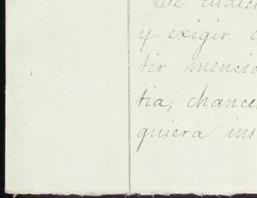 y exigir
tir mencio
tia, chance
quiera ins